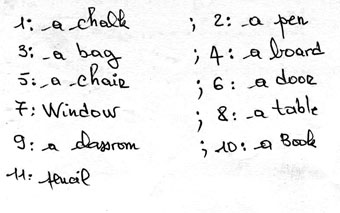 1: a chalk ; 2: a pen
3: a bag ; 4: a board
5: a chair ; 6: a door
7: Window ; 8: a table
9: a classrom ; 10: a Book
11: pencil